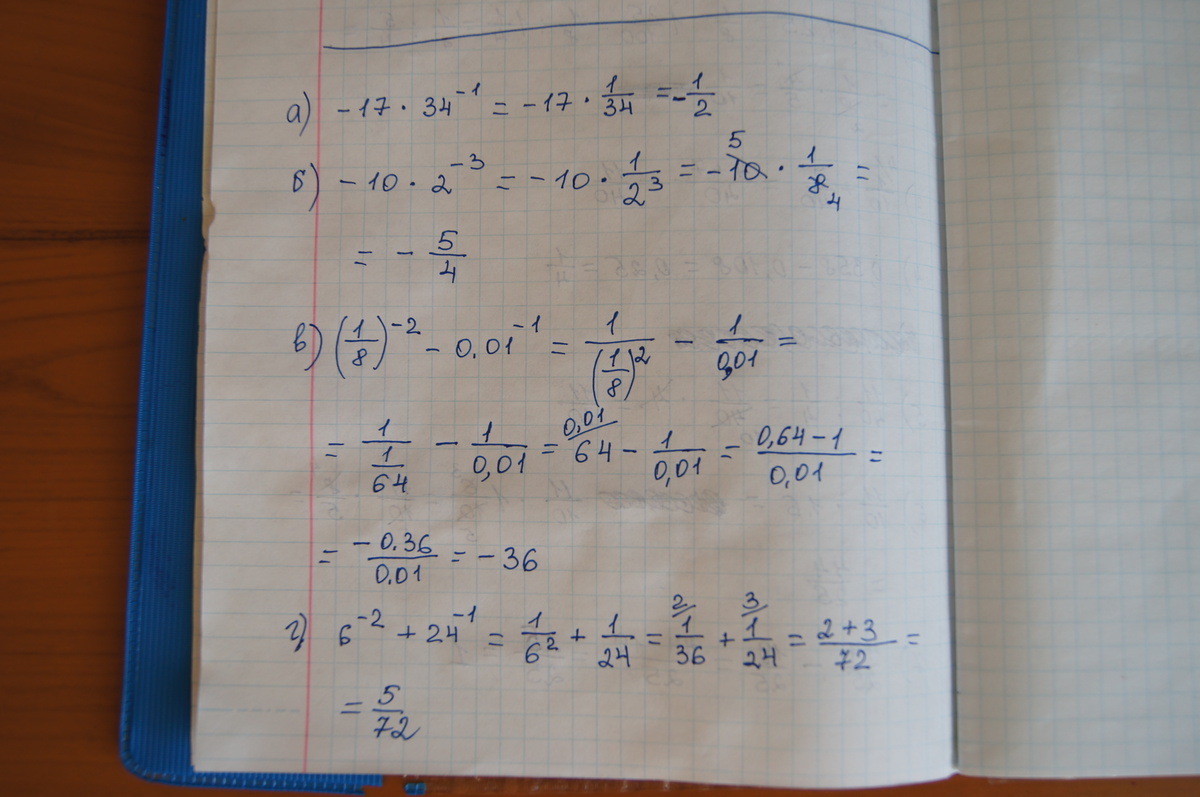 а) -17 · 34⁻¹ = -17 · 1/34 = -1/2
б) -10 · 2⁻³ = -10 · 1/2³ = -10 5 · 1/8 4 =
= - 5/4
в) (1/8)⁻² - 0.01⁻¹ = 1/(1/8)² - 1/0,01 =
= 1/(1/64) - 1/0,01 = 0,01/ 64 - 1/0,01 = (0,64-1)/0,01 =
= -0.36/0.01 = -36
г) 6⁻² + 24⁻¹ = 1/6² + 1/24 = 2/ 1/36 + 3/ 1/24 = (2+3)/72 =
= 5/72